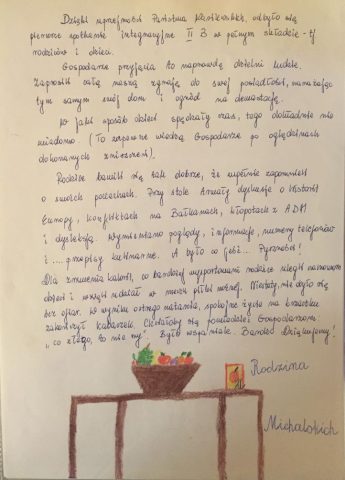 Dzięki uprzejmości Państwa odbyło się
pierwsze spotkanie integracyjne II B w pełnym składzie - tj
rodziców i dzieci.
Gospodarze przyjęcia to naprawdę dzielni ludzie.
Zaprosili całą naszą zgraję do swej posiadłości, narażając
tym samym swój dom i ogród na dewastację.
W jaki sposób dzieci spędzały czas, tego dokładnie nie
wiadomo. (To zapewne wiedzą Gospodarze po oględzinach
dokonanych zniszczeń).
Rodzice bawili się tak dobrze, że zupełnie zapomnieli
o swoich pociechach. Przy stole trwały dyskusje o historii
Europy, konfliktach na Bałkanach, kłopotach z ADHD
i dysleksją. Wymieniano poglądy, informacje, numery telefonów
i .... przepisy kulinarne. A było co jeść... Pyszności!
Dla zrzucenia kalorii, co bardziej wysportowani rodzice ulegli namowom
dzieci i wzięli udział w meczu piłki nożnej. Niestety, nie było się
bez ofiar. W wyniku ostrego natarcia, spokojne życie na krzaczku
zakończył Kabaczek. Chciałoby się powiedzieć Gospodarzom:
"co złego, to nie my". Było wspaniale. Bardzo Dziękujemy!
Rodzina
Michalskich